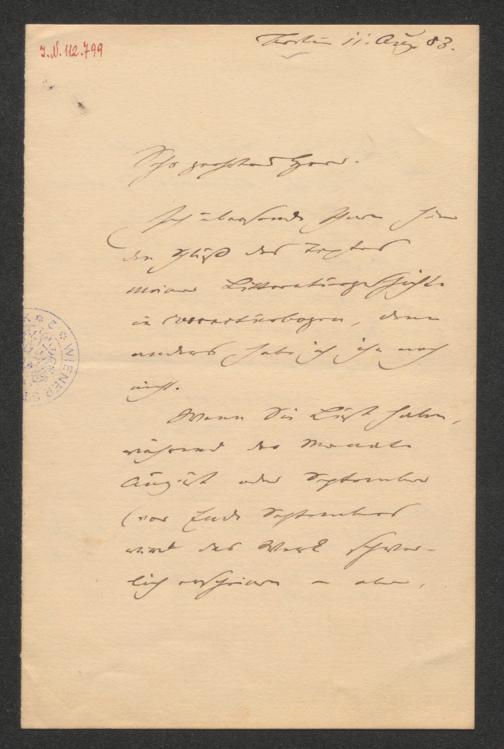 J.N. 112.799
Berlin 11. Aug 83.
Sehr geehrter Herr.
Ich übersende Ihnen hier
den Schluß des Textes
meiner Litteraturgeschichte
in Correcturbogen, denn
anders habe ich ihn noch
nicht.
Wenn Sie Lust haben,
während der Monate
August oder September
(vor Ende September
wird das Werk schwer-
lich erscheinen – aber,
* WIENER